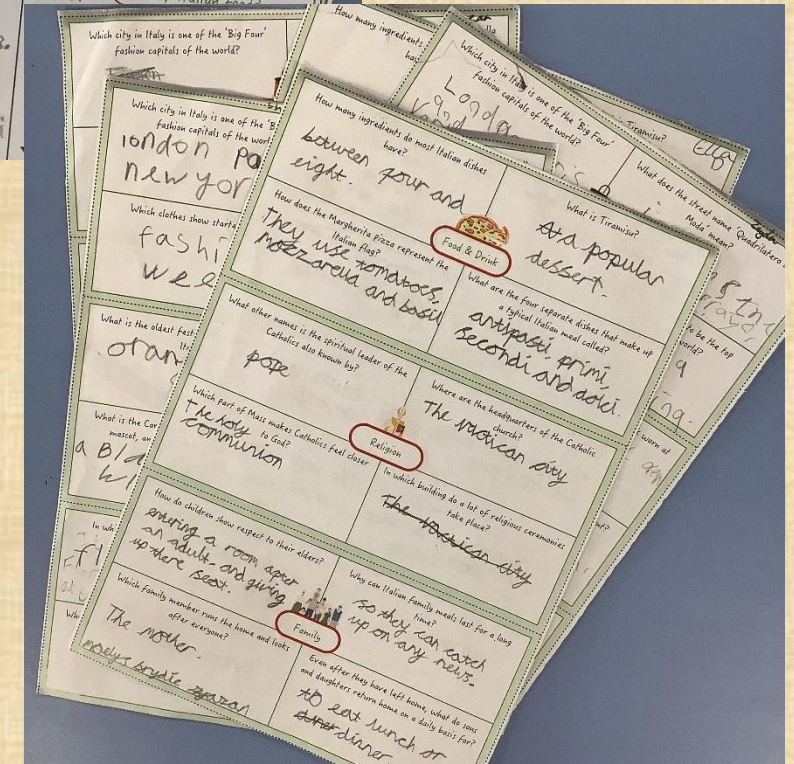 Which city in Italy is one of the 'Big Four'
fashion capitals of the world?
How many ingredients
Which city in Italy is one of the 'Big Four'
fashion capitals of the world?
Tiramisu?
What does the street name 'Quadrilatero
Moda' mean?
Which city in Italy is one of the 'B
fashion capitals of the worl
london pa
new yor
Which clothes show starte
fashi
wee
What is the oldest fest
oran
What is the Cor
mascot, an
a Bla
In wh
to be the top
world?
worn at
How many ingredients do most Italian dishes
have?
between four and
eight.
What is Tiramisu?
a popular
dessert.
How does the Margherita pizza represent the
Italian flag?
They use tomatoes,
mozzarella and basil
Food & Drink
What are the four separate dishes that make up
a typical Italian meal called?
antipasti, primi,
secondi and dolci.
What other names is the spiritual leader of the
Catholics also known by?
pope
Where are the headquarters of the Catholic
church?
The vactican city
Which part of Mass makes Catholics feel closer
to God?
The holy
communion
Religion
In which building do a lot of religious ceremonies
take place?
The vactican city
How do children show respect to their elders?
entering a room after
an adult and giving
up there seat.
Why can Italian family meals last for a long
time?
so they can catch
up on any news.
Family
Which family member runs the home and looks
after everyone?
The mother.
Even after they have left home, what do sons
and daughters return home on a daily basis for?
to eat lunch or
dinner